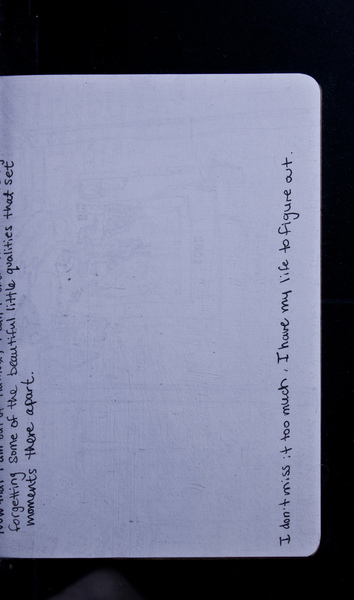 Now that I am out of
forgetting some of the beautiful little qualities that set
moments there apart.
I don't miss it too much, I have my life to figure out.